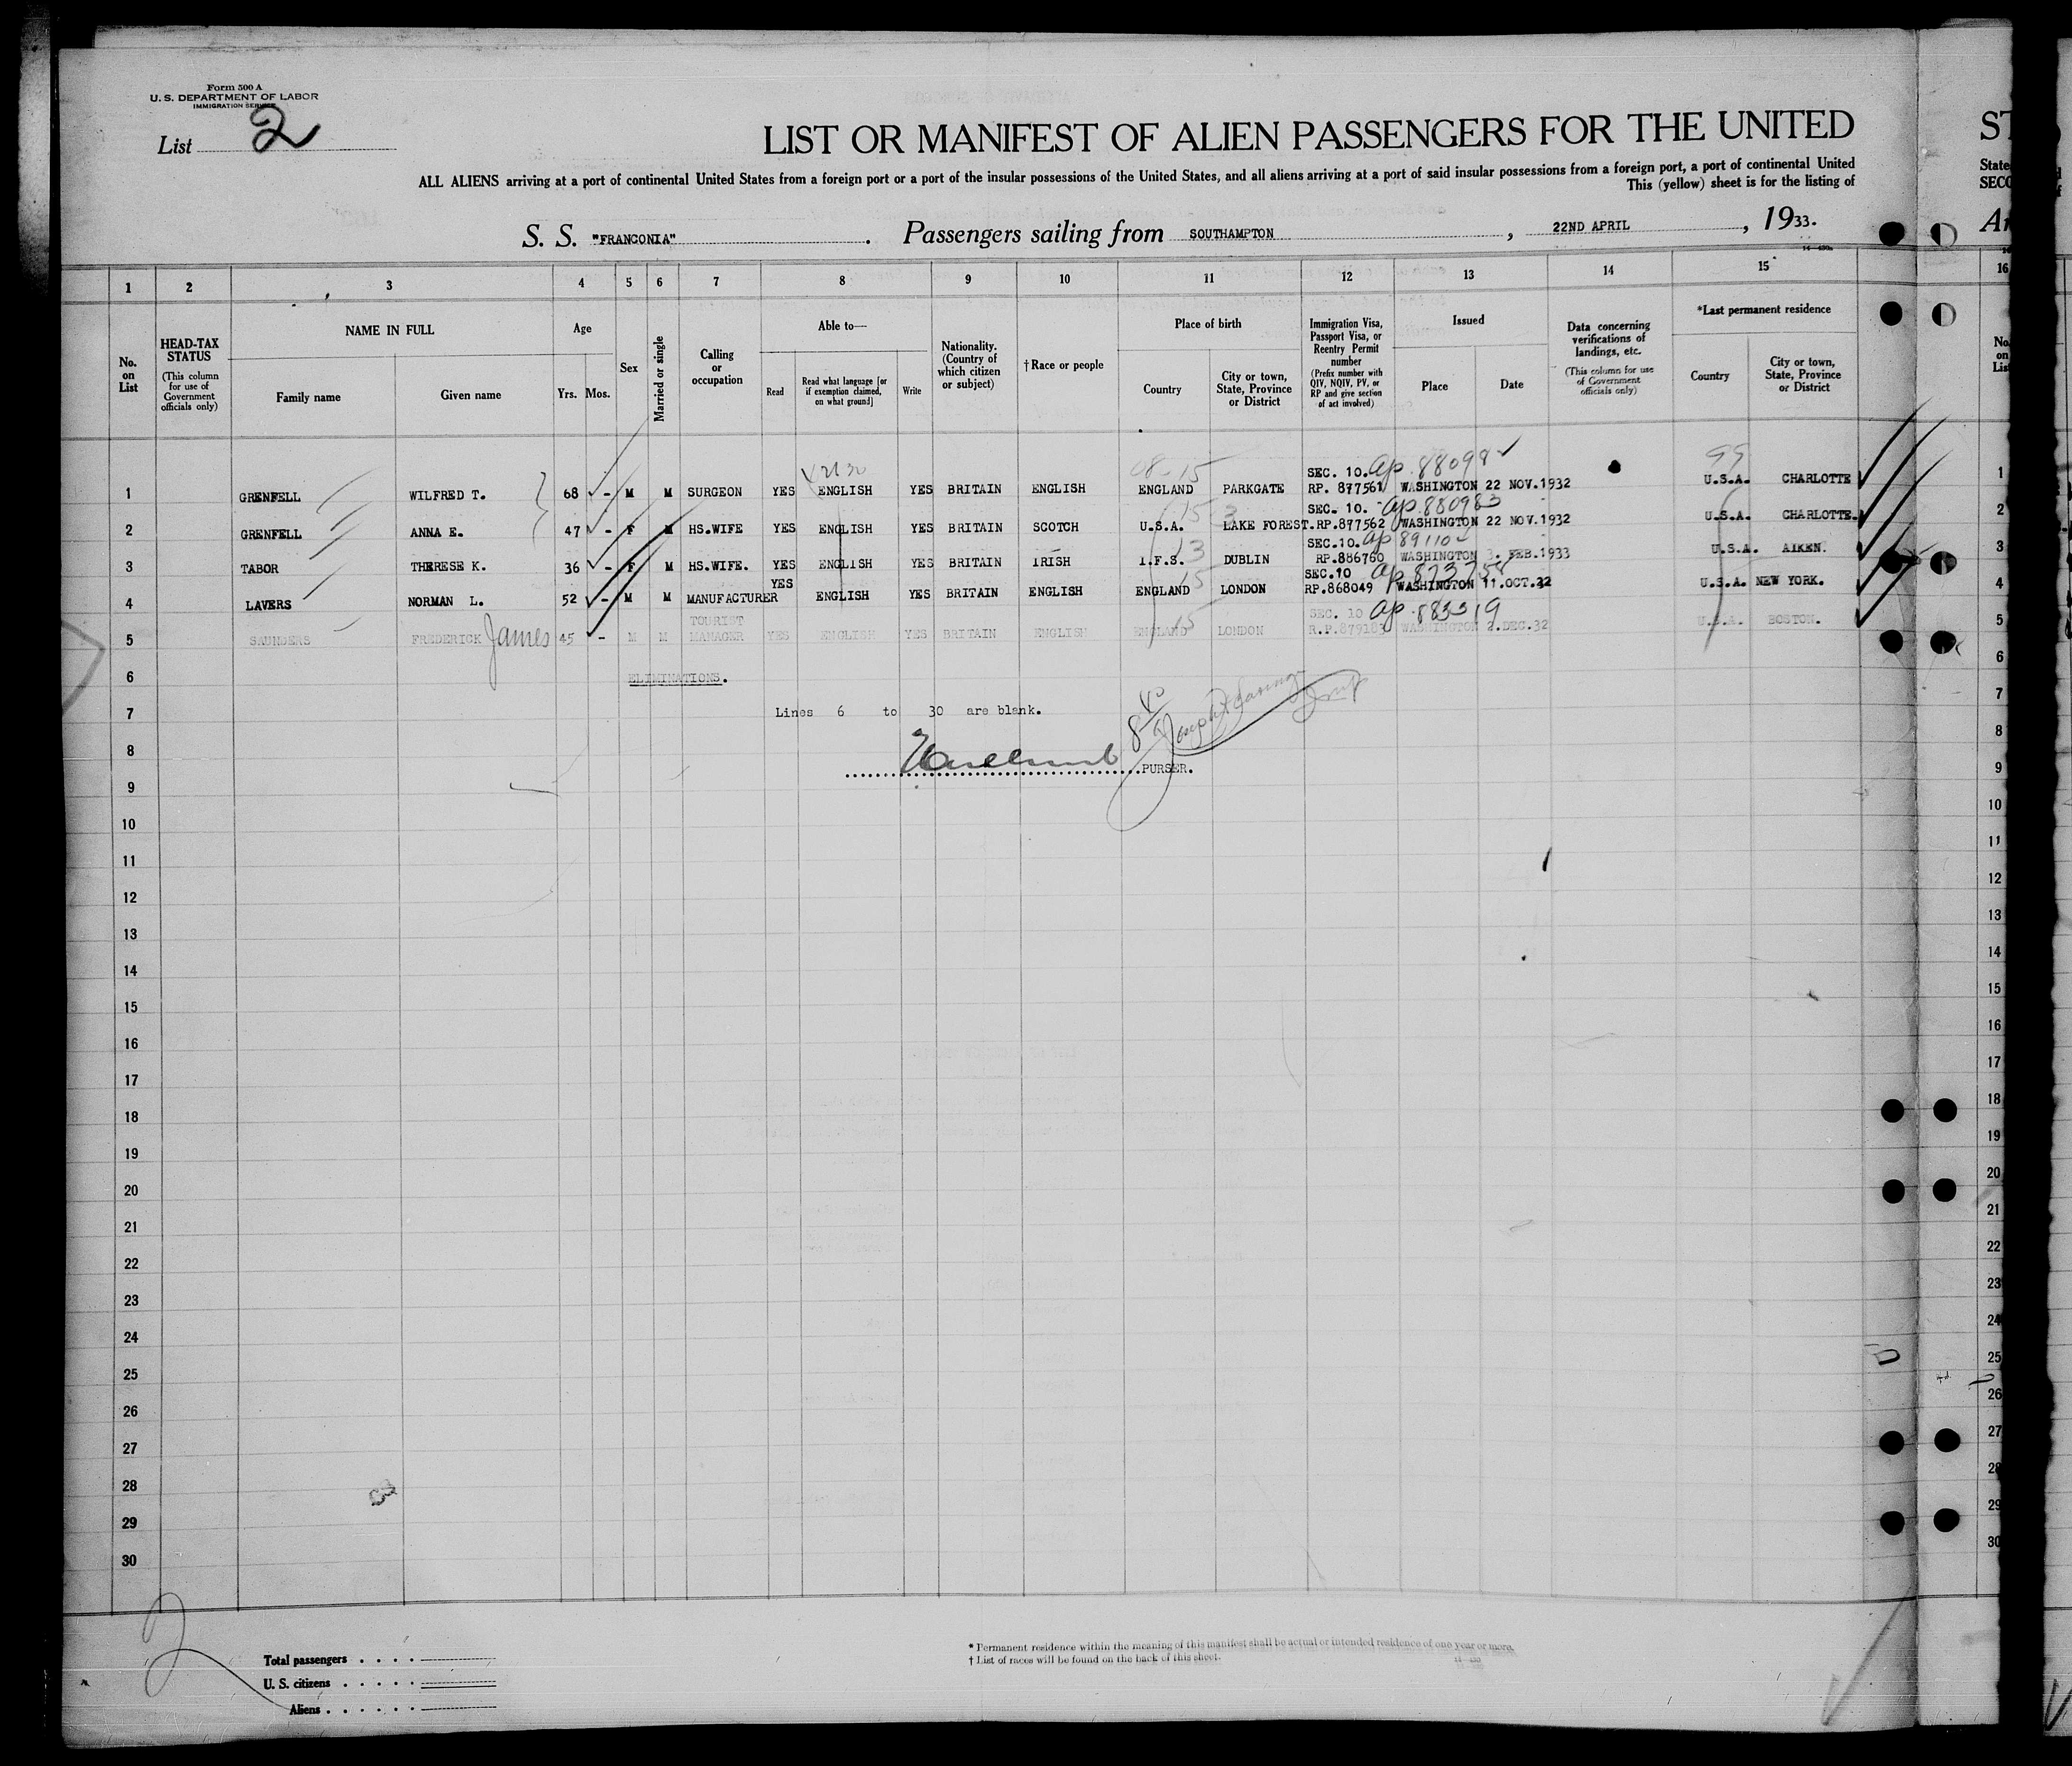 Form 500 A
U. S. DEPARTMENT OF LABOR
IMMIGRATION SERVICE
List 2
LIST OR MANIFEST OF ALIEN PASSENGERS FOR THE UNITED
ALL ALIENS arriving at a port of continental United States from a foreign port or a port of the insular possessions of the United States, and all aliens arriving at a port of said insular possessions from a foreign port, a port of continental United
This (yellow) sheet is for the listing of
S. S. "FRANCONIA" . Passengers sailing from SOUTHAMPTON , 22ND APRIL , 1933.
1 2 3 4 5 6 7 8 9 10 11 12 13 14 15 16
No. on List
HEAD-TAX STATUS (This column for use of Government officials only)
NAME IN FULL
Family name Given name
Age
Yrs. Mos.
Sex
Married or single
Calling or occupation
Able to—
Read Read what language [or if exemption claimed, on what ground] Write
Nationality. (Country of which citizen or subject)
† Race or people
Place of birth
Country City or town, State, Province or District
Immigration Visa, Passport Visa, or Reentry Permit number (Prefix number with QIV, NQIV, PV, or RP and give section of act involved)
Issued
Place Date
Data concerning verifications of landings, etc. (This column for use of Government officials only)
*Last permanent residence
Country City or town, State, Province or District
08-15 SEC. 10. 99
1 GRENFELL WILFRED T. 68 - M M SURGEON YES ENGLISH YES BRITAIN ENGLISH ENGLAND PARKGATE RP. 877561 WASHINGTON 22 NOV.1932 U.S.A. CHARLOTTE 1
15 3 SEC. 10. ap. 880983
2 GRENFELL ANNA E. 47 - F M HS.WIFE YES ENGLISH YES BRITAIN SCOTCH U.S.A. LAKE FOREST. RP.877562 WASHINGTON 22 NOV.1932 U.S.A. CHARLOTTE. 2
13 SEC.10.
3 TABOR THERESE K. 36 - F M HS.WIFE. YES ENGLISH YES BRITAIN IRISH I.F.S. DUBLIN RP.886760 WASHINGTON 3. FEB.1933 U.S.A. AIKEN. 3
YES 15 SEC.10
4 LAVERS NORMAN L. 52 - M M MANUFACTURER ENGLISH YES BRITAIN ENGLISH ENGLAND LONDON RP.868049 WASHINGTON 11.OCT.32 U.S.A. NEW YORK. 4
TOURIST 15 SEC. 10 ap. 883319
5 SAUNDERS FREDERICK James 45 - M M MANAGER YES ENGLISH YES BRITAIN ENGLISH ENGLAND LONDON R.P.879183 WASHINGTON 2.DEC.32 U.S.A. BOSTON. 5
6 ELIMINATIONS. 6
7 Lines 6 to 30 are blank. 7
8 8
PURSER.
9 9
10 10
11 11
12 12
13 13
14 14
15 15
16 16
17 17
18 18
19 19
20 20
21 21
22 22
23 23
24 24
25 25
26 26
27 27
28 28
29 29
30 30
2
Total passengers
U. S. citizens
Aliens
* Permanent residence within the meaning of this manifest shall be actual or intended residence of one year or more.
† List of races will be found on the back of this sheet.